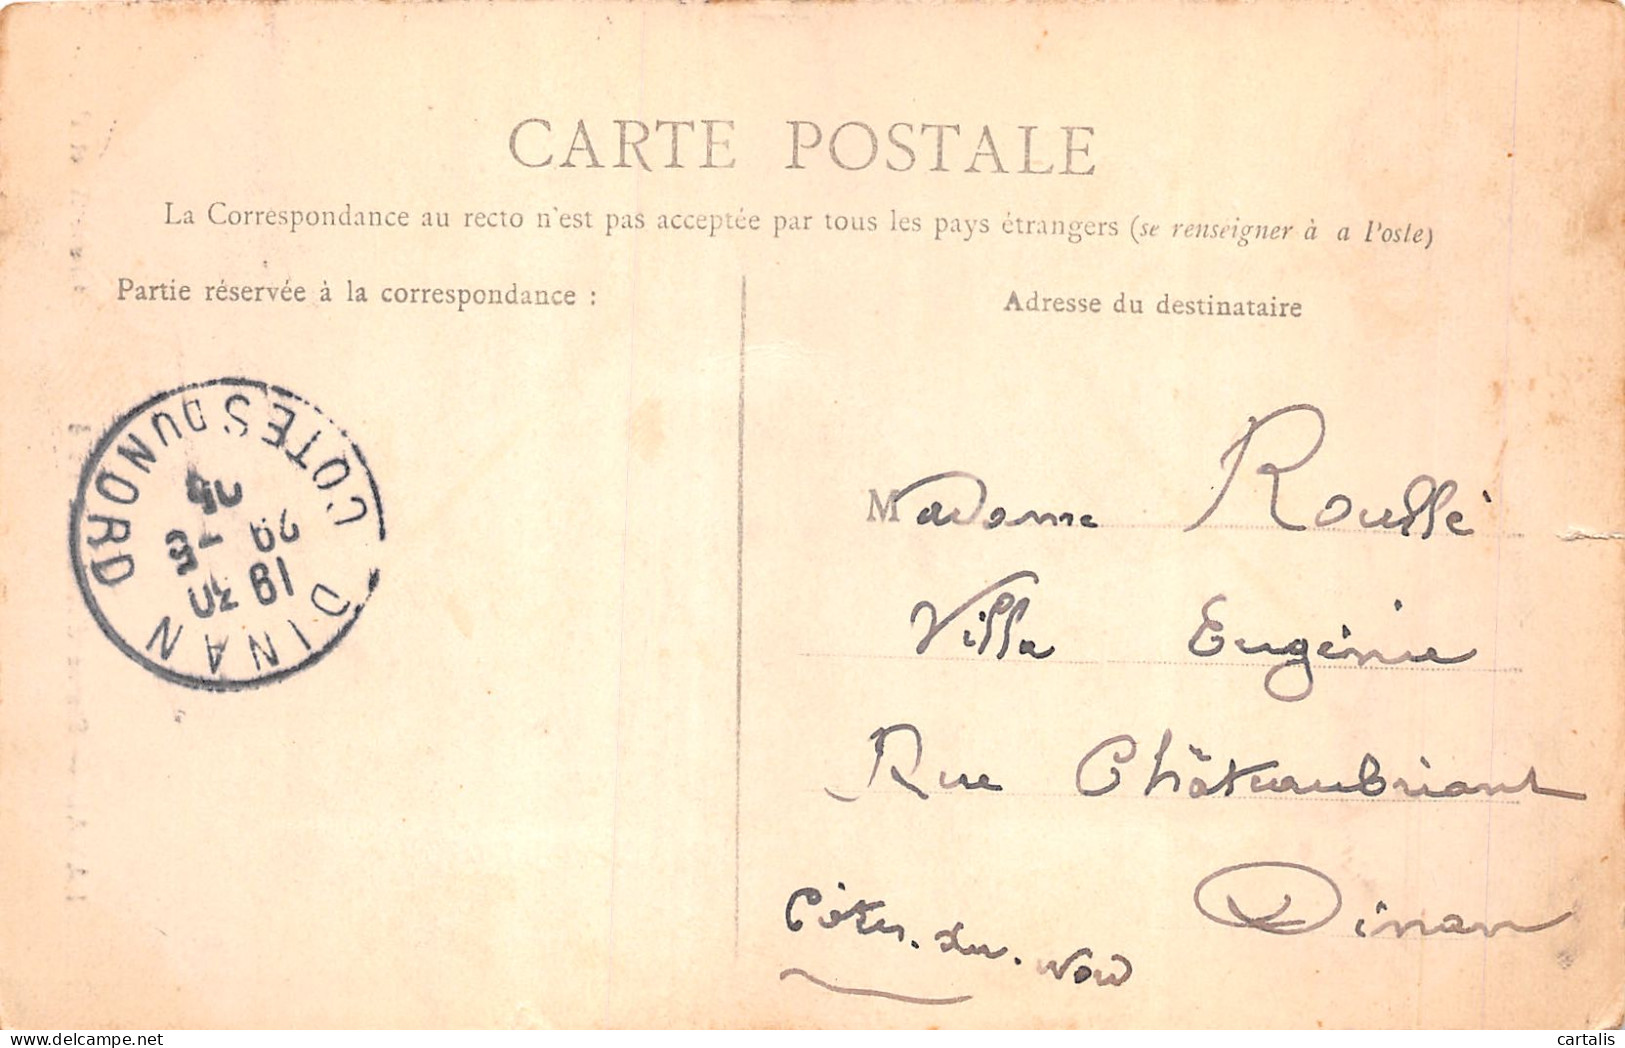 CARTE POSTALE
La Correspondance au recto n'est pas acceptée par tous les pays étrangers (se renseigner à a Poste)
Partie réservée à la correspondance :
Adresse du destinataire
DINAN
COTES DU NORD
Madame Roullé
Villa Eugénie
Rue Châteaubriant
Dinan
Côtes. du. Nord
cartalis